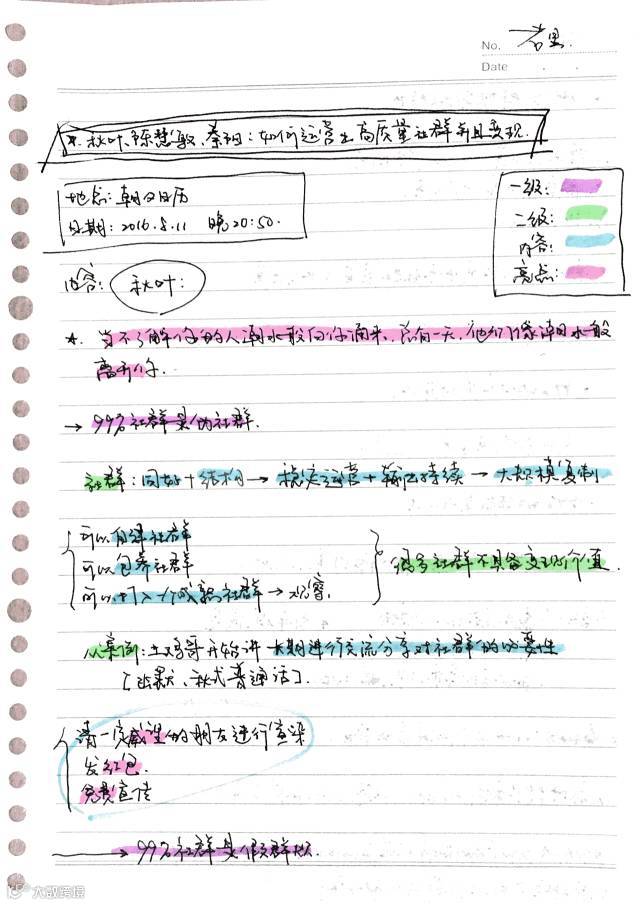 No. 若里
Date
*. 秋叶、陈慧敏、秦阳:如何运营出高质量社群并且变现.
地点:朝夕日历
日期:2016.8.11 晚20:50.
一级:
二级:
内容:
亮点:
内容: 秋叶:
*. 当不了解你的人潮水般向你涌来,总有一天,他们像潮水一般
离开你.
→ 99%社群是伪社群.
社群:同好+结构→稳定运营+输出持续→大规模复制
可以自建社群
可以包养社群
可以打入一个成熟社群→观察.
很多社群不具备变现价值.
从案例:土鸡哥开始讲 大期进行交流分享对社群的必要性
[幽默、秋式普通话].
请一定威望的朋友进行宣染
发红包.
免费宣传
→99%社群是假群
大数跨境